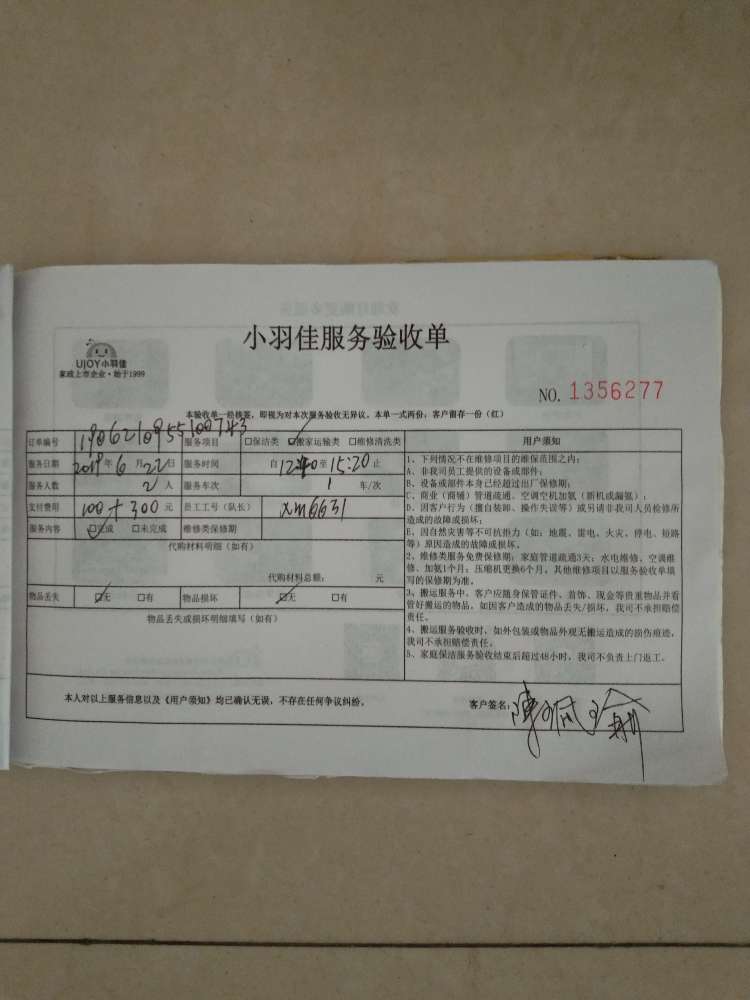 小羽佳服务验收单
UJOY小羽佳
家政上市企业·始于1999
NO. 1356277
本验收单一经核签，即视为对本次服务验收无异议。本单一式两份，客户留存一份（红）
订单编号 1906210955100743 服务项目 □保洁类 ☑搬家运输类 □维修清洗类
服务日期 2019年6月22日 服务时间 自 至15:20止
服务人数 2人 服务车次 1 车/次
支付费用 100+300元 员工工号（队长） xm6631
服务内容 ☑完成 □未完成 维修类保修期
代购材料明细（如有）
代购材料总额： 元
物品丢失 ☑无 □有 物品损坏 ☑无 □有
物品丢失或损坏明细填写（如有）
用户须知
1、下列情况不在维修项目的维保范围之内：
A、非我司员工提供的设备或部件；
B、设备或部件本身已经超过出厂保修期；
C、商业（商铺）管道疏通、空调空机加氨（新机或漏氨）；
D、因客户行为（擅自装卸、操作失误等）或另请非我司人员检修所
造成的故障或损坏；
E、因自然灾害等不可抗拒力（如：地震、雷电、火灾、停电、短路
等）原因造成的故障或损坏。
2、维修类服务免费保修期：家庭管道疏通3天；水电维修、空调维
修、加氨1个月；压缩机更换6个月。其他维修项目以服务验收单填
写的保修期为准。
3、搬运服务中，客户应随身保管证件、首饰、现金等贵重物品并看
管好搬运的物品。如因客户造成的物品丢失/损坏，我司不承担赔偿
责任。
4、搬运服务验收时，如外包装或物品外观无搬运造成的损伤痕迹，
我司不承担赔偿责任。
5、家庭保洁服务验收结束后超过48小时，我司不负责上门返工。
本人对以上服务信息以及《用户须知》均已确认无误，不存在任何争议纠纷。
客户签名：